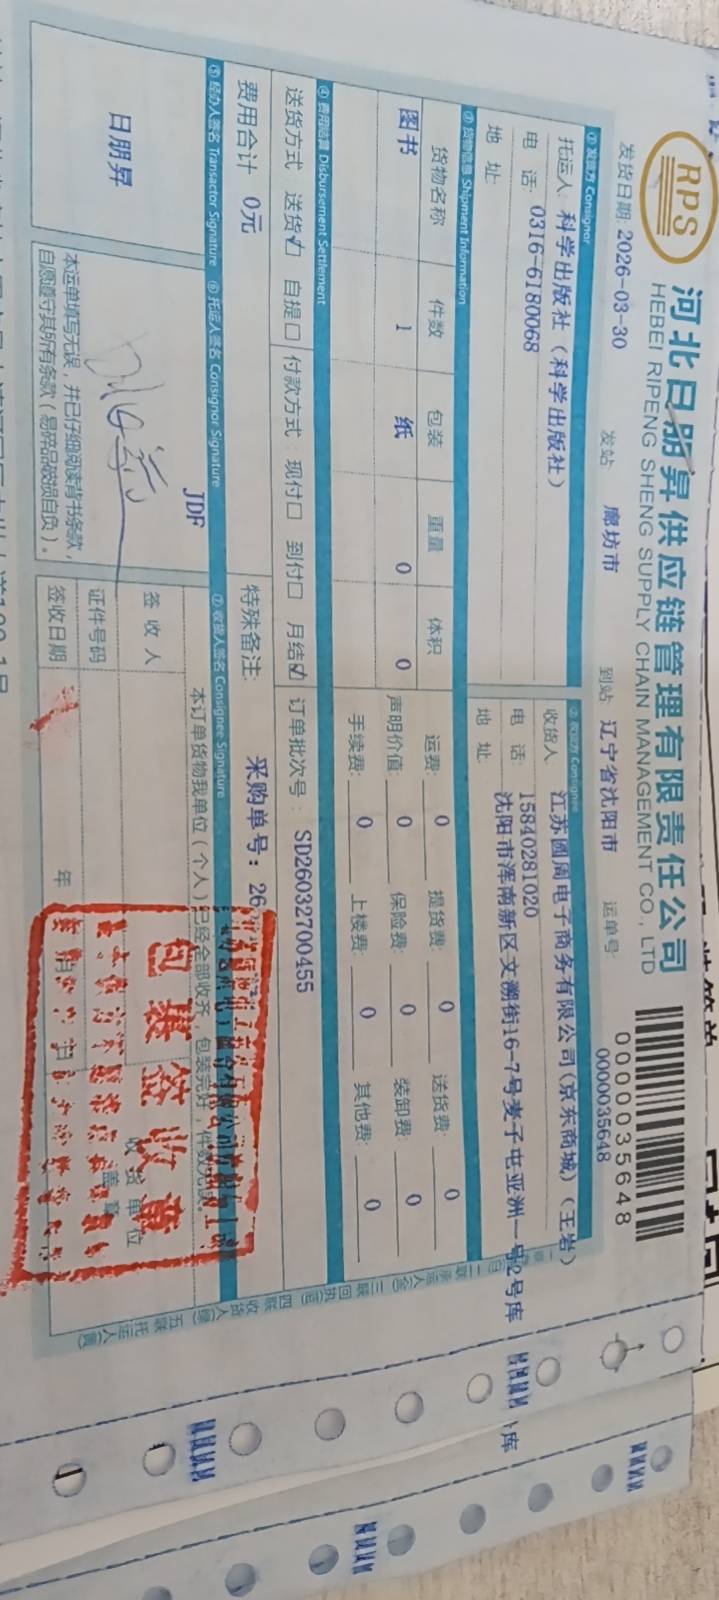 RPS
河北日朋昇供应链管理有限责任公司
HEBEI RIPENG SHENG SUPPLY CHAIN MANAGEMENT CO., LTD
0000035648
发货日期: 2026-03-30 发站: 廊坊市 到站: 辽宁省沈阳市 运单号: 0000035648
① 发货方 Consignor
托运人: 科学出版社（科学出版社）
电 话: 0316-6180068
地 址:
② 收货方 Consignee
收货人: 江苏圆周电子商务有限公司(京东商城)（王岩）
电 话: 15840281020
地 址: 沈阳市浑南新区文溯街16-7号麦子屯亚洲一号2号库
③ 货物信息 Shipment Information
货物名称 件数 包装 重量 体积
图书 1 纸 0 0
运费: 0 提货费: 0 送货费: 0
声明价值: 0 保险费: 0 装卸费: 0
手续费: 0 上楼费: 0 其他费: 0
④ 费用结算 Disbursement Settlement
送货方式 送货☑ 自提☐ 付款方式: 现付☐ 到付☐ 月结☑ 订单批次号: SD26032700455
费用合计 0元 特殊备注: 采购单号: 26
⑤ 经办人签名 Transactor Signature
日朋昇
⑥ 托运人签名 Consignor Signature
JDF
本运单填写无误，并已仔细阅读背书条款，
自愿遵守其所有条款（易碎品破损自负）。
⑦ 收货人签名 Consignee Signature
本订单货物我单位（个人）已经全部收齐，包装完好，件数
签 收 人
证件号码
签收日期 年
收货单位
盖章
包装签收章